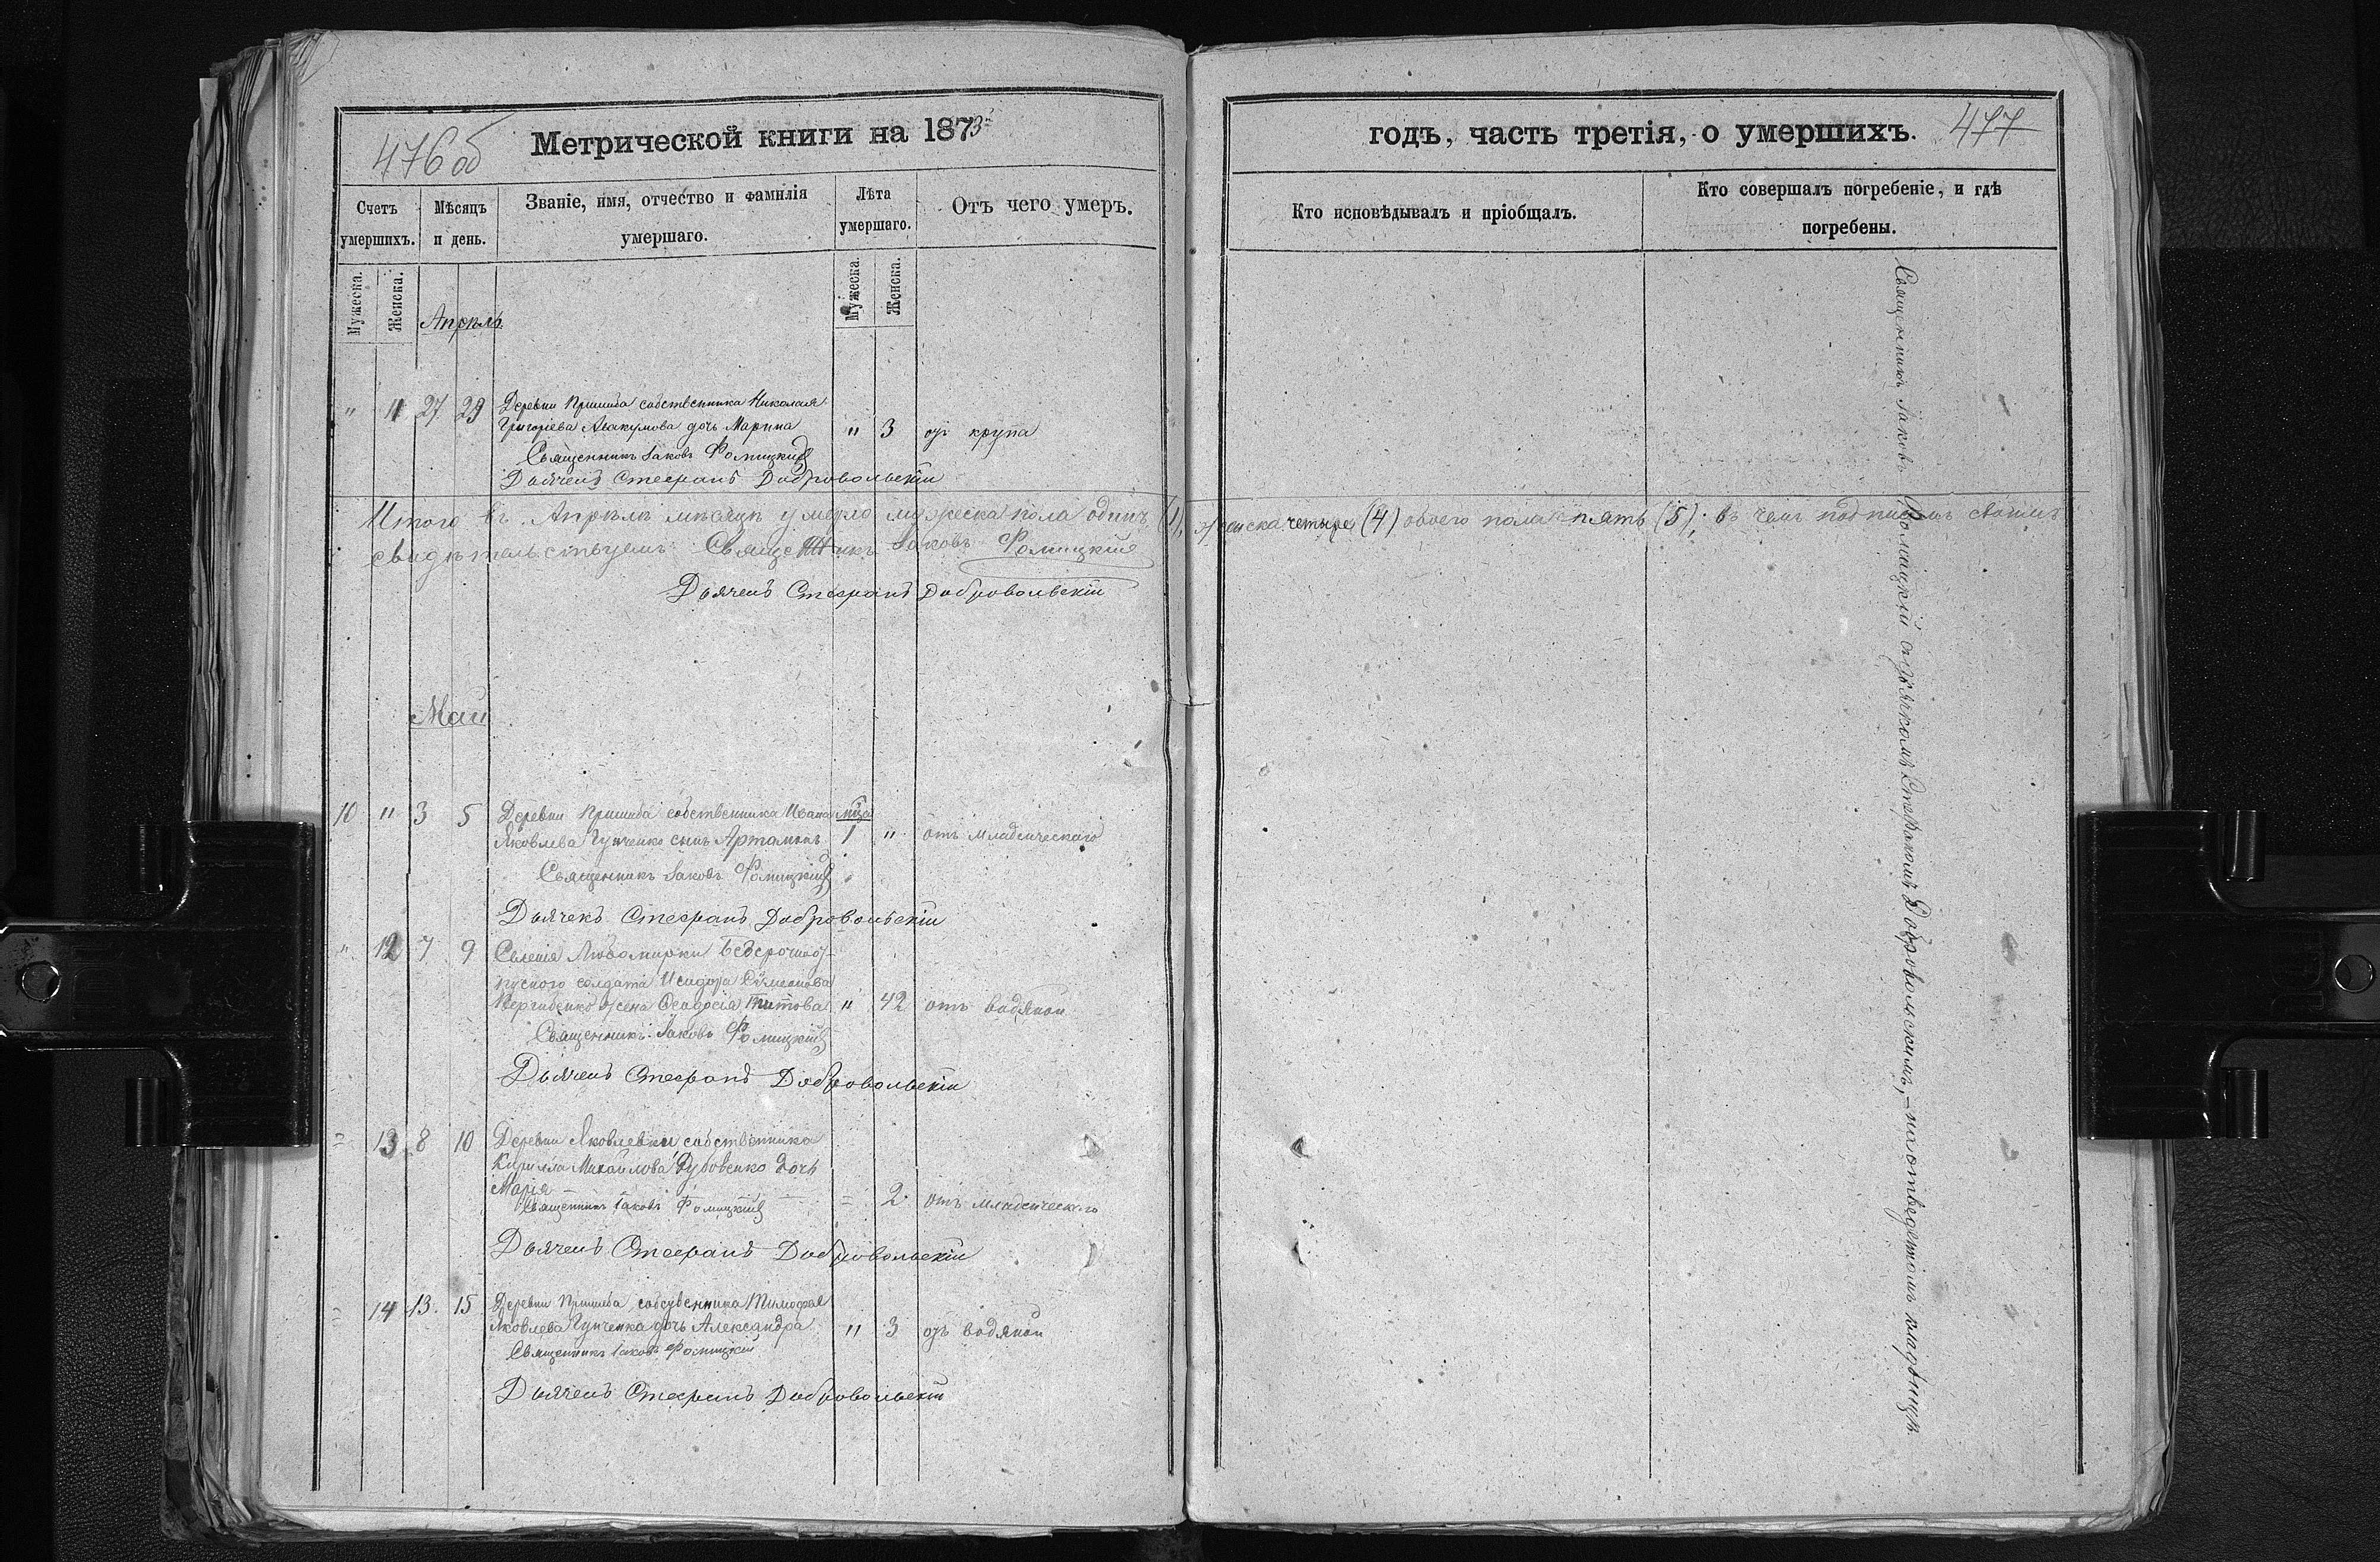 476 об
Метрической книги на 1873
годъ, часть третія, о умершихъ.
477
Счетъ умершихъ.
Мѣсяцъ и день.
Званіе, имя, отчество и фамилія умершаго.
Лѣта умершаго.
Отъ чего умеръ.
Кто исповѣдывалъ и пріобщалъ.
Кто совершалъ погребеніе, и гдѣ погребены.
Мужеска.
Женска.
Мужеска.
Женска.
Апрѣль
" 11 27 29 Деревни Пришиба собственника Николая
Григорьева Авакумова дочь Марина " 3 отъ крупа
Священникъ Іаковъ Фомицкій
Дьячекъ Стефанъ Добровольскій
Итого въ Апрѣлѣ мѣсяцѣ умерло мужеска пола одинъ (1), женска четыре (4) обоего пола пять (5); въ чемъ подписомъ своимъ
свидѣтельствуемъ Священникъ Іаковъ Фомицкій
Дьячекъ Стефанъ Добровольскій
Май
10 " 3 5 Деревни Пришиба собственника Ивана мѣсяца
Яковлева Гунченко сынъ Артамонъ 1 " отъ младенческаго
Священникъ Іаковъ Фомицкій
Дьячекъ Стефанъ Добровольскій
" 12 7 9 Селенія Любомирки безсрочноот-
пускного солдата Исидора
жена Феодосія Титова " 42 отъ водяной
Священникъ Іаковъ Фомицкій
Дьячекъ Стефанъ Добровольскій
= 13 8 10 Деревни Яковлевки собственника
Кирилла Михайлова Дубовенко дочь
Марія = 2 отъ младенческаго
Священникъ Іаковъ Фомицкій
Дьячекъ Стефанъ Добровольскій
= 14 13 15 Деревни Пришиба собственника Тимофея
Яковлева Гунченка дочь Александра " 3 отъ водяной
Священникъ Іаковъ Фомицкій
Дьячекъ Стефанъ Добровольскій
Священникъ Іаковъ Фомицкій съ дьячкомъ Стефаномъ Добровольскимъ, – на отведенномъ кладбищѣ.